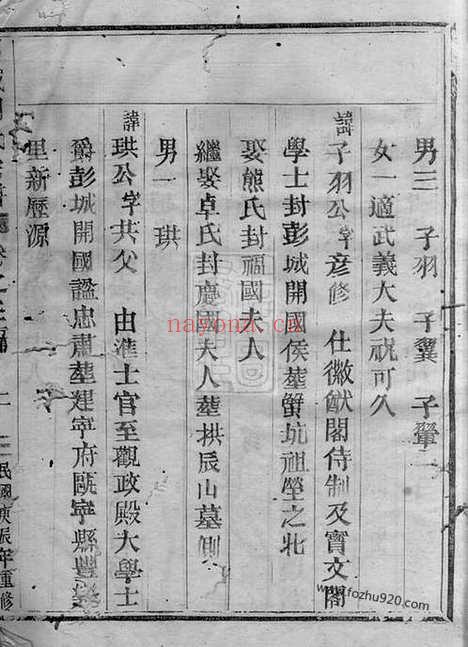 男三 子羽 子翼 子翬
女一適武義大夫祝可久
諱子羽公字彥修 仕徽猷閣待制及寶文閣
學士封彭城開國侯塟蟹坑祖塋之北
娶熊氏封福國夫人
繼娶卓氏封慶國夫人塟拱辰山墓側
男一 珙
諱珙公字共父 由進士官至觀政殿大學士
爵彭城開國諡忠肅塟建寧府甌寧縣豐樂
里新歷源
民國庚辰年重修
nayona.cn
www.fozhu920.com